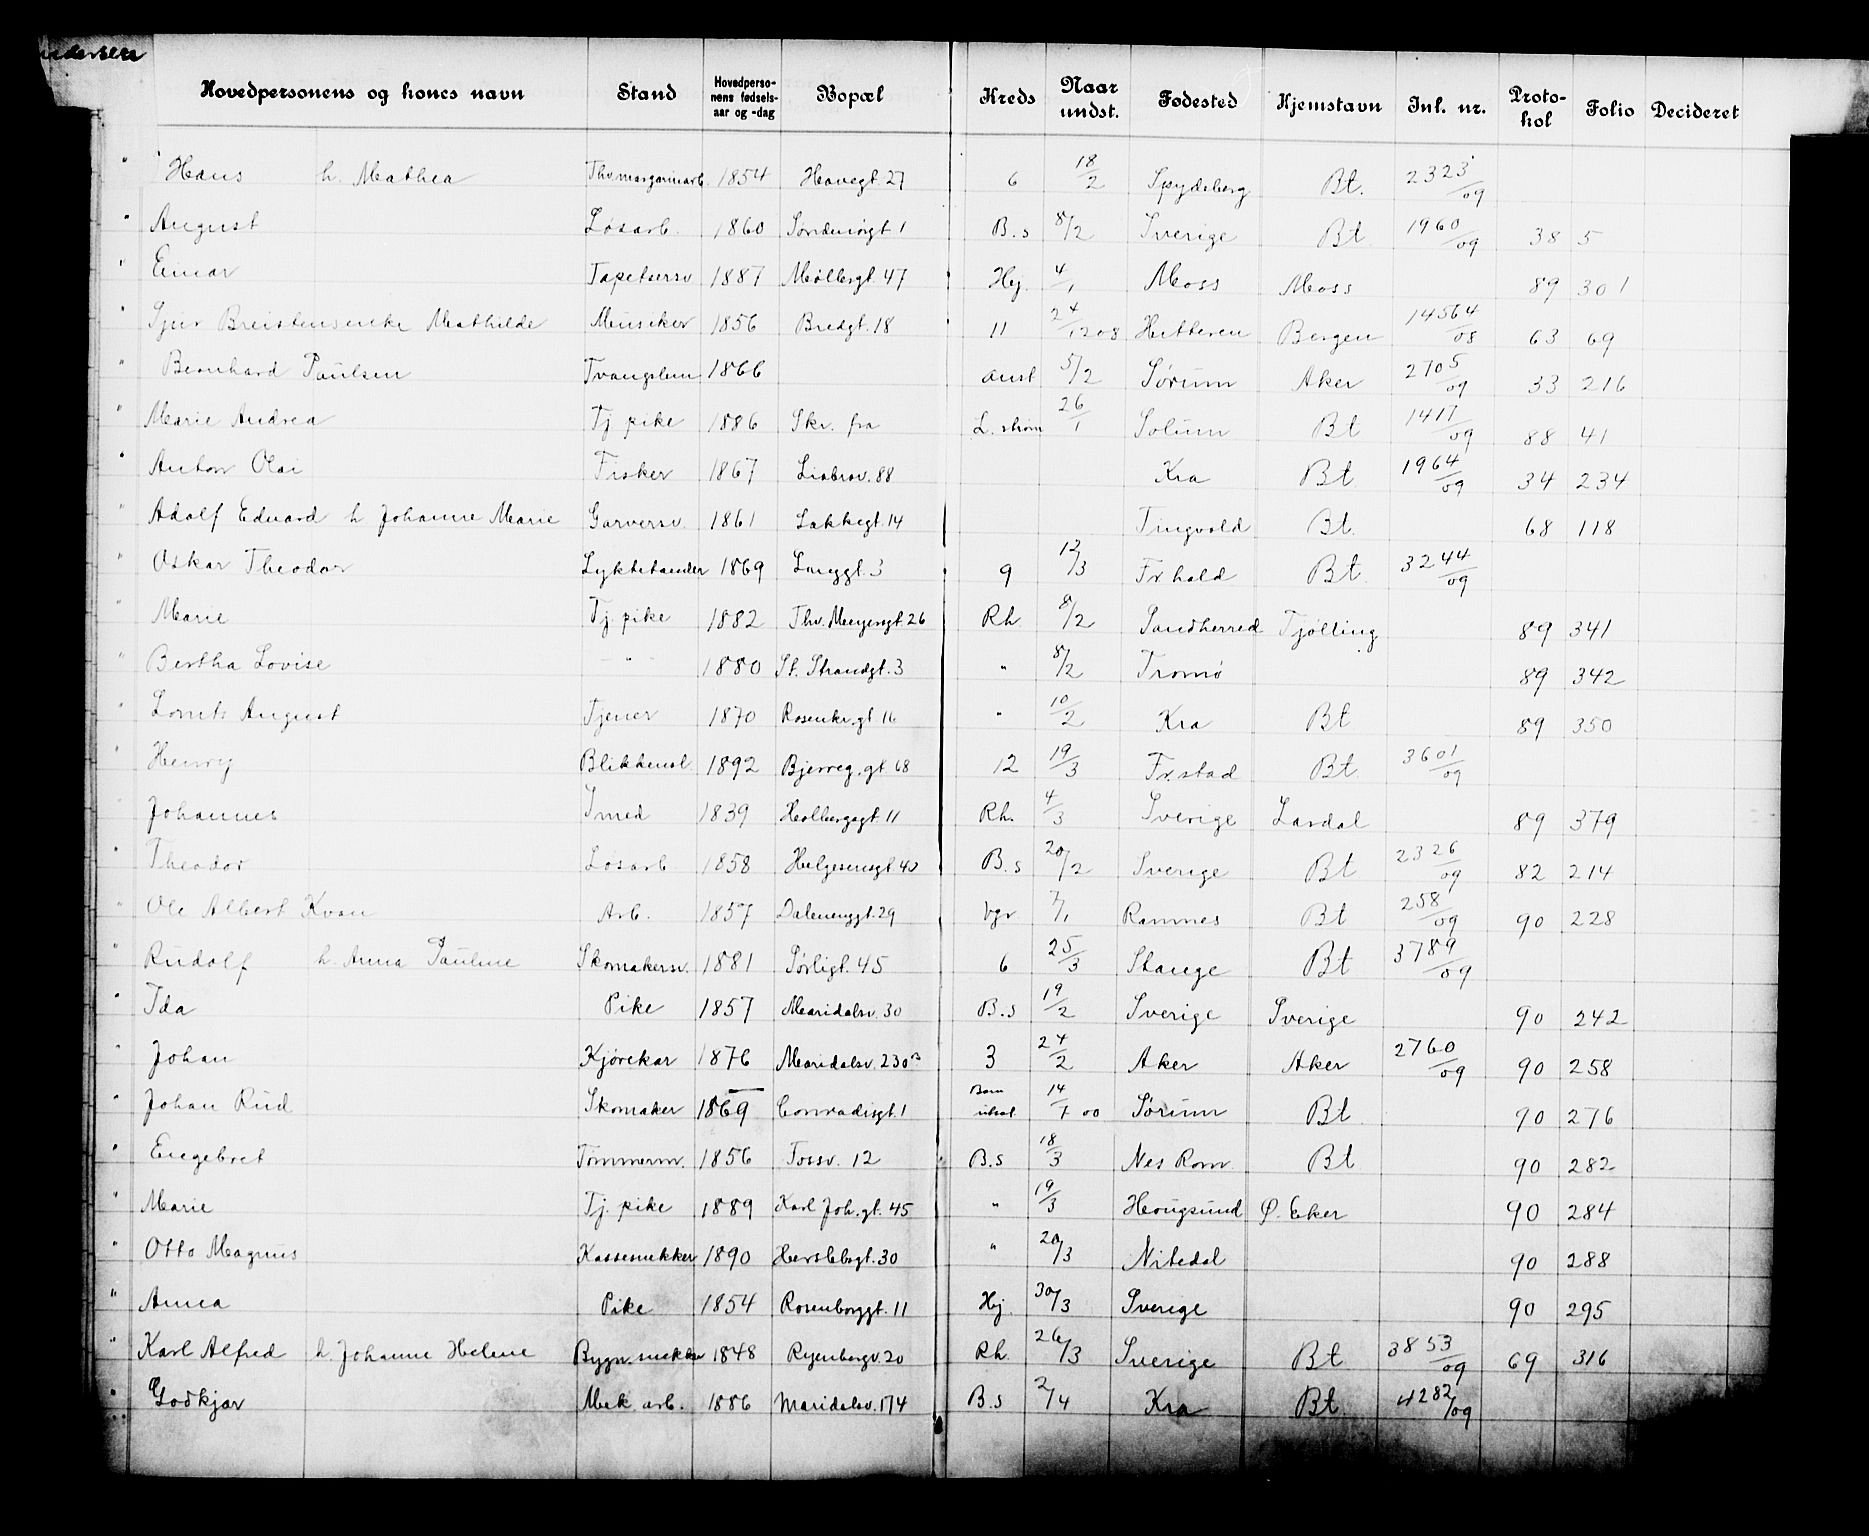 Andersen
Hovedpersonens og konens navn Stand Hovedpersonens fødselsaar og -dag Bopæl Kreds Naar undst. Fødested Hjemstavn Inl. nr. Protokol Folio Decideret
" Hans h. Mathea Thv.margarinarb. 1854 Havegt. 27 6 18/2 Spydeberg Bt. 2323/09
" August Løsarb. 1860 Søndenørgt 1 B.s 8/2 Sverige Bt 1960/09 38 5
" Einar Tapetsersv 1887 Møllergt. 47 Hej. 4/1 Moss Moss 89 301
" Sjur Breistensenke Mathilde Musiker 1856 Bredgt. 18 11 24/12 08 Hitteren Bergen 14564/08 63 69
" Bernhard Paulsen Tvangslem 1866 anst 5/2 Sørum Aker 2705/09 33 216
" Marie Andrea Tj. pike 1886 Skr. fra L. strøm 26/1 Solum Bt 1417/09 88 41
" Anton Olai Fisker 1867 Liabrov. 88 Kra Bt 1964/09 34 234
" Adolf Edvard h Johanne Marie Garversv. 1861 Lakkegt. 14 Tingvold Bt. 68 118
" Oskar Theodor Lyktetænder 1869 Lmyggt. 3 9 12/3 Fr.hald Bt. 3244/09
" Marie Tj. pike 1882 Thv. Meyersgt. 26 Rh. 8/2 Sandherred Tjølling 89 341
" Bertha Lovise " 1880 St. Strandgt. 3 " 8/2 Tromø 89 342
" Lorntz August Tjener 1870 Rosenkr.gt 16 " 10/2 Kra Bt 89 350
" Henry Blikkensl. 1892 Bjerreg.gt. 68 12 19/3 Fr.stad Bt. 3601/09
" Johannes Smed 1839 Holbergsgt. 11 Rh. 4/3 Sverige Lardal 89 379
" Theodor Løsarb. 1858 Helgesensgt. 40 B.s 20/2 Sverige Bt 2326/09 82 214
" Ole Albert Kvan Arb. 1857 Dalenenggt. 29 Vgr 7/1 Ramnes Bt 258/09 90 228
" Rudolf h. Anna Pauline Skomakersv. 1881 Sørligt. 45 6 25/3 Stange Bt 3789/09
" Ida Pike 1857 Maridalsv. 30 B.s 19/2 Sverige Sverige 90 242
" Johan Kjørekar 1876 Maridalsv. 230B 3 24/2 Aker Aker 2760/09 90 258
" Johan Rud Skomaker 1869 Conradisgt. 1 Barn utsat 14/7 00 Sørum Bt. 90 276
" Engebret Tømmerm. 1856 Fossv. 12 B.s 18/3 Nes Rom. Bt 90 282
" Marie Tj. pike 1889 Karl Joh. gt. 45 " 19/3 Hougsund Ø. Eker 90 284
" Otto Magnus Kassesnekker 1890 Herslebsgt. 30 " 20/3 Nitedal 90 288
" Anna Pike 1854 Rosenborggt. 11 Hj. 30/3 Sverige 90 295
" Karl Alfred h. Johanne Helene Bygn.snekker 1848 Ryenbergv. 20 Rh. 26/3 Sverige Bt 3853/09 69 316
" Godkjar Mek. arb. 1886 Maridalsv. 174 B.s 2/4 Kra Bt 4282/09